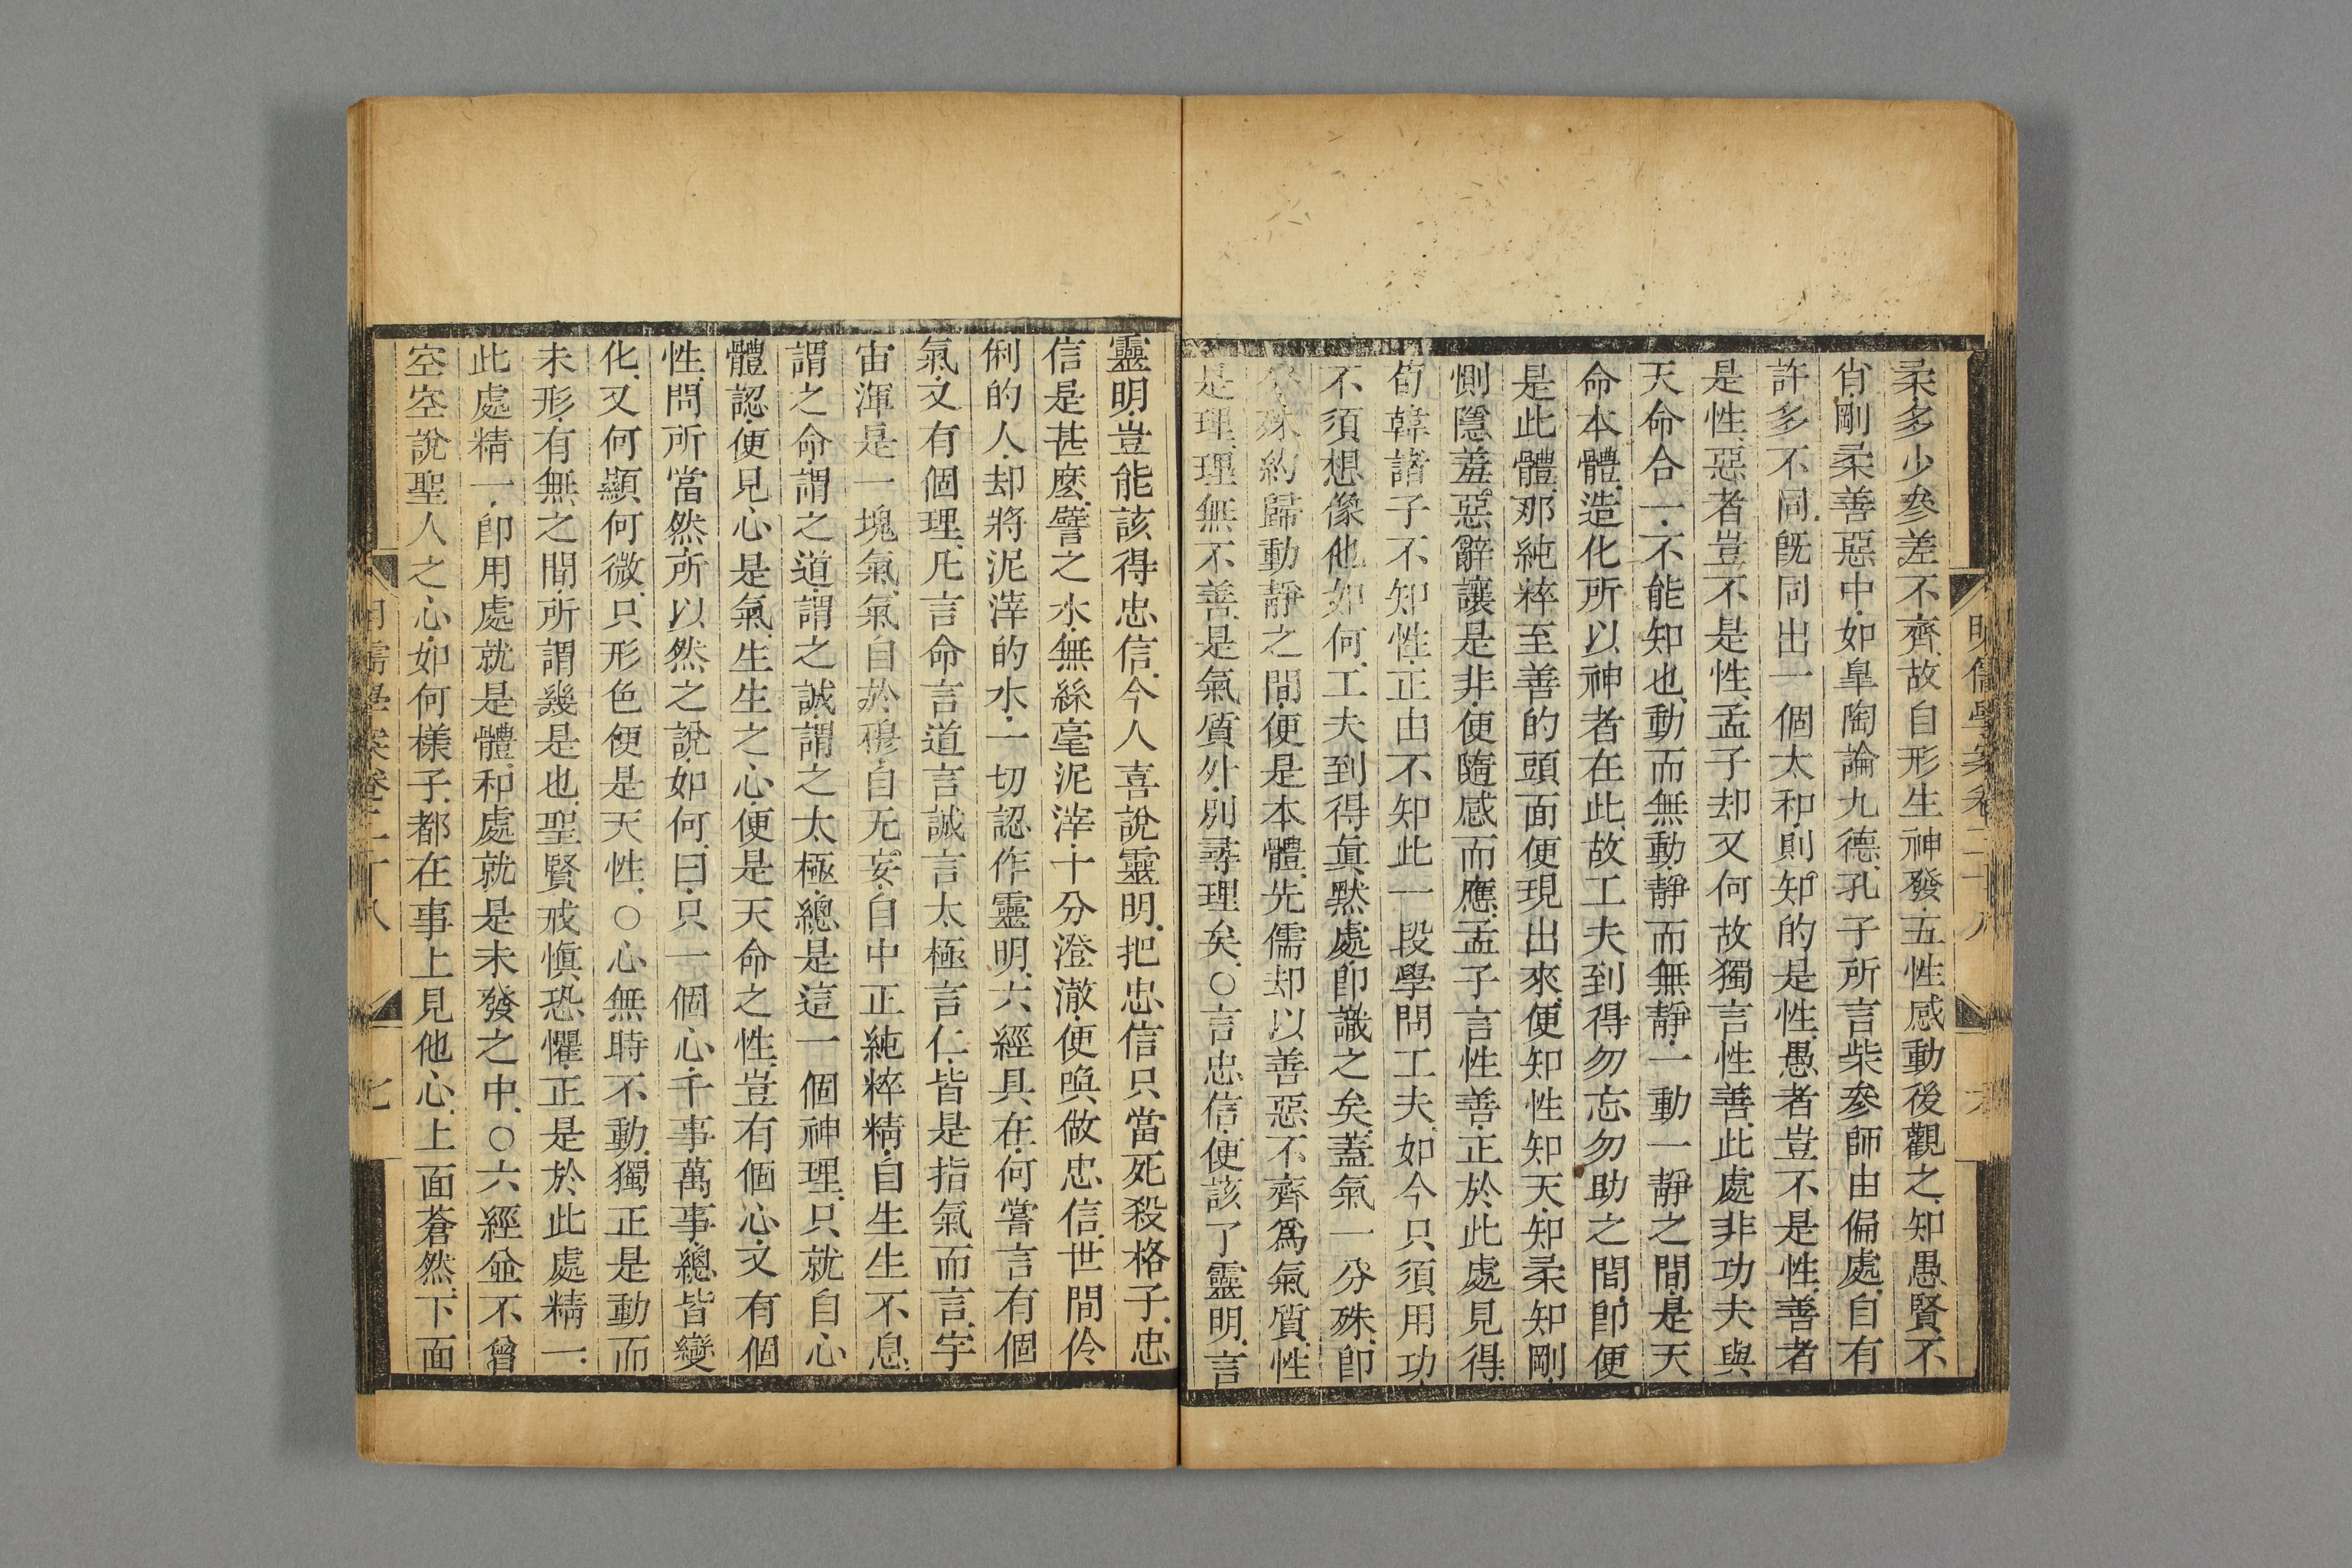 明儒學案卷二十八
六
柔多少參差不齊故自形生神發五性感動後觀之知愚賢不
肖剛柔善惡中如皐陶論九德孔子所言柴參師由偏處自有
許多不同旣同出一個太和則知的是性愚者豈不是性善者
是性惡者豈不是性孟子却又何故獨言性善此處非功夫與
天命合一不能知也動而無動靜而無靜一動一靜之間是天
命本體造化所以神者在此故工夫到得勿忘勿助之間卽便
是此體那純粹至善的頭面便現出來便知性知天知柔知剛
惻隱羞惡辭讓是非便隨感而應孟子言性善正於此處見得
荀韓諸子不知性正由不知此一段學問工夫如今只須用功
不須想像他如何工夫到得眞默處卽識之矣蓋氣一分殊卽
分殊約歸動靜之間便是本體先儒却以善惡不齊爲氣質性
是理理無不善是氣質外別尋理矣○言忠信便該了靈明言
靈明豈能該得忠信今人喜說靈明把忠信只當死殺格子忠
信是甚麽譬之水無絲毫泥滓十分澄澈便喚做忠信世間伶
俐的人却將泥滓的水一切認作靈明六經具在何嘗言有個
氣又有個理凡言命言道言誠言太極言仁皆是指氣而言宇
宙渾是一塊氣氣自於穆自无妄自中正純粹精自生生不息
謂之命謂之道謂之誠謂之太極總是這一個神理只就自心
體認便見心是氣生生之心便是天命之性豈有個心又有個
性問所當然所以然之說如何曰只一個心千事萬事總皆變
化又何顯何微只形色便是天性○心無時不動獨正是動而
未形有無之間所謂幾是也聖賢戒愼恐懼正是於此處精一
此處精一卽用處就是體和處就是未發之中○六經並不曾
空空說聖人之心如何樣子都在事上見他心上面蒼然下面
明儒學案卷二十八
七